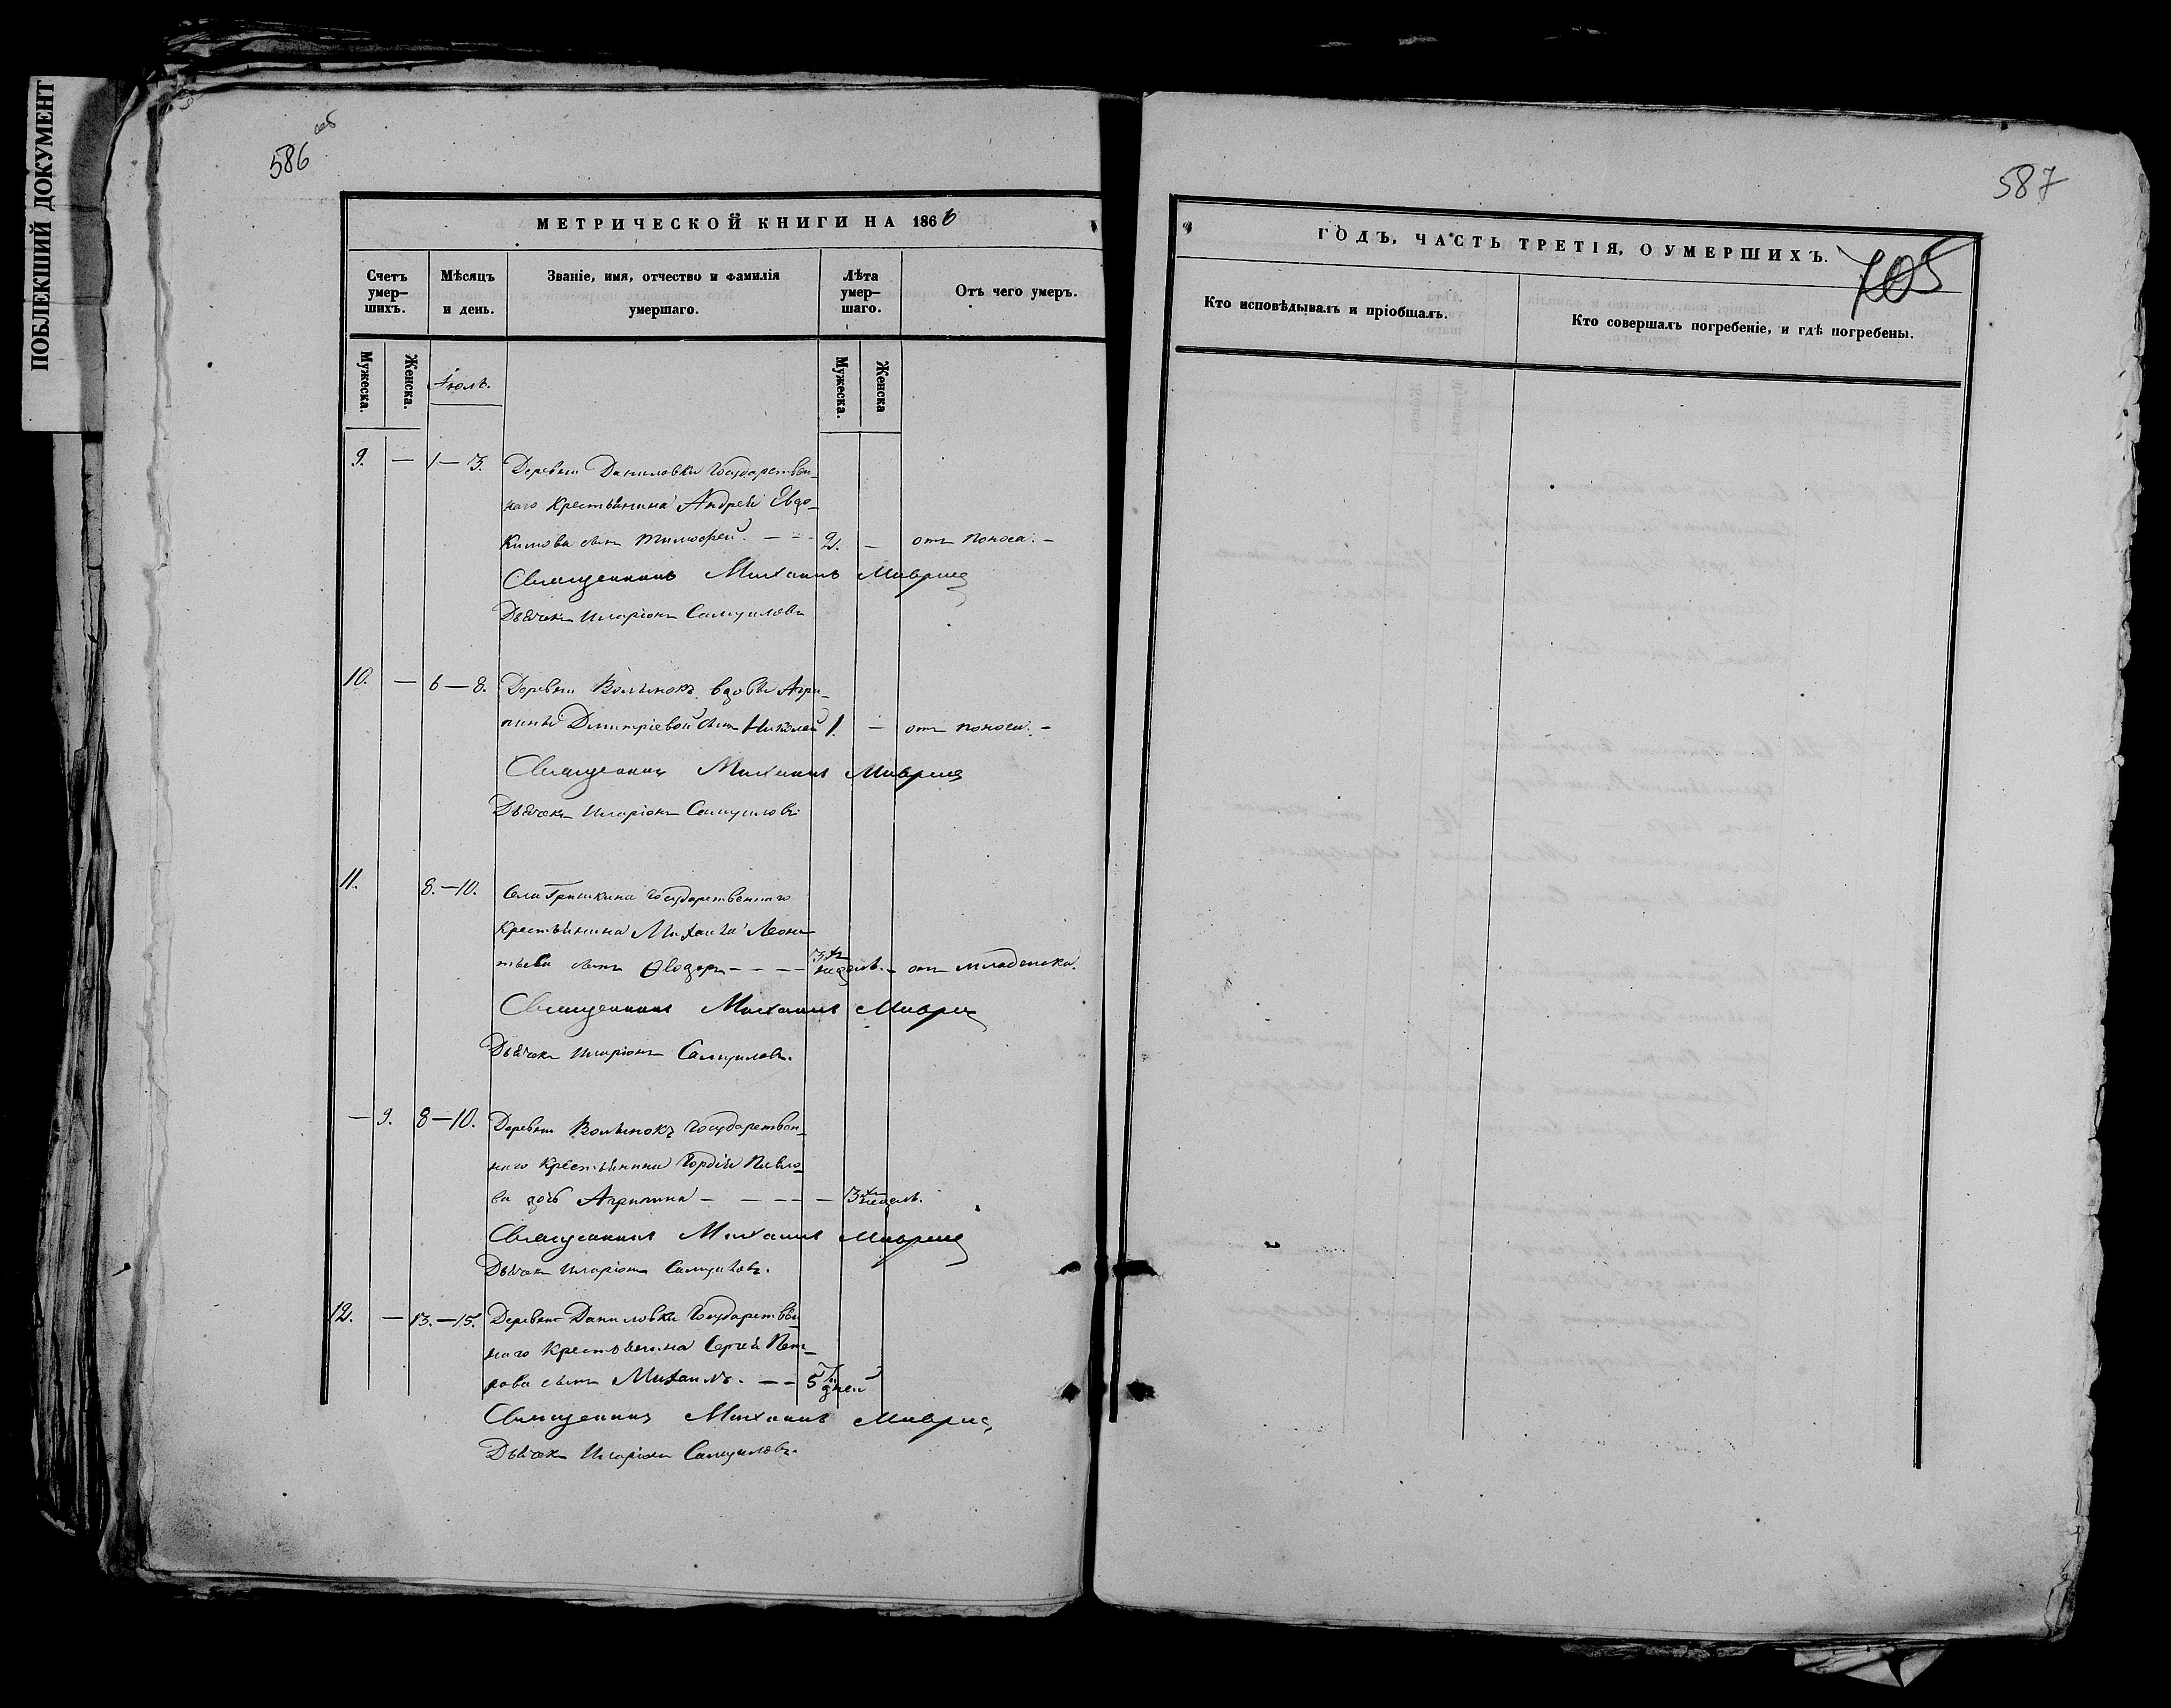 ПОБЛЕКШИЙ ДОКУМЕНТ
586 об
МЕТРИЧЕСКОЙ КНИГИ НА 1866
Счетъ умер-шихъ. Мѣсяцъ и день. Званіе, имя, отчество и фамилія умершаго. Лѣта умер-шаго. Отъ чего умеръ.
Мужеска. Женска. Іюль. Мужеска. Женска
9. — 1—3. Деревни Даниловки Государствен-
наго Крестьянина Андрея Евдо-
кимова сынъ Тимофей. — — 2. — отъ поноса. —
Священникъ Михаилъ
Дьячокъ Иларіонъ Самуиловъ
10. — 6—8. Деревни Волынокъ вдовы Агри-
пины Дмитріевой сынъ Николай 1. — отъ поноса. —
Священникъ Михаилъ
Дьячокъ Иларіонъ Самуиловъ
11. 8.—10. Села Гришкина Государственнаго
Крестьянина Михаила Леон-
тьева сынъ Ѳеодоръ — — — — 3хъ недѣль. — отъ младенска.
Священникъ Михаилъ
Дьячокъ Иларіонъ Самуиловъ.
— 9. 8—10. Деревни Волынокъ Государствен-
наго Крестьянина Гордѣя Павло-
ва дочь Агрипина — — — — — 3хъ недѣль.
Священникъ Михаилъ
Дьячокъ Иларіонъ Самуиловъ.
12. — 13.—15. Деревни Даниловки Государствен-
наго Крестьянина Сергея Пет-
рова сынъ Михаилъ. — — 5ти дней
Священникъ Михаилъ
Дьячокъ Иларіонъ Самуиловъ.
587
ГОДЪ, ЧАСТЬ ТРЕТІЯ, О УМЕРШИХЪ.
705
Кто исповѣдывалъ и пріобщалъ. Кто совершалъ погребеніе, и гдѣ погребены.